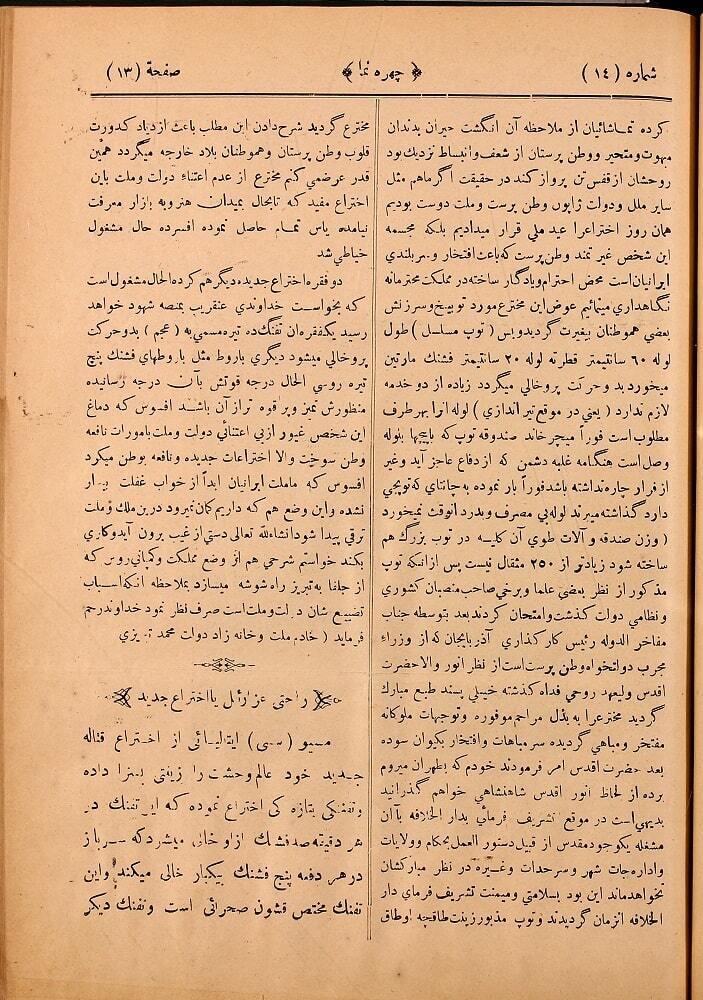 شماره (١٤)
﴿ چهره نما ﴾
صفحة (١٣)
کرده تماشائیان از ملاحظه آن انگشت حیران بدندان
مبهوت ومتحیر ووطن پرستان از شعف وانبساط نزدیك بود
روحشان از قفس تن پرواز کند در حقیقت اگر ماهم مثل
سایر ملل ودولت ژاپون وطن پرست وملت دوست بودیم
همان روز اختراعرا عید ملی قرار میدادیم بلکه مجسمه
این شخص غیرتمند وطن پرست که باعث افتخار وسربلندی
ایرانیان است محض احترام ویادگار ساخته در مملکت محترمانه
نگاهداری مینمائیم عوض این مخترع مورد توبیخ وسرزنش
بعضی هموطنان بیغیرت گردید وبس ( توپ مسلسل ) طول
لوله ٦٠ سانتیمتر قطر ته لوله ٢٠ سانتیمتر فشنك مارتین
میخورد بد وحرکت پروخالی میگردد زیاده از دو خدمه
لازم ندارد ( یعنی در موقع تیر اندازی ) لوله انرا بهر طرف
مطلوب است فوراً میچرخاند صندوقه توپ که باپیچها بلوله
وصل است هنگامه غلبه دشمن که از دفاع عاجز آید وغیر
از فرار چاره نداشته باشد فوراً بار نموده به چانتای که توپچی
دارد گذاشته میبرند لوله بی مصرف وبدرد انوقت نمیخورد
( وزن صندقه وآلات طوی آن کلیه در توپ بزرگ هم
ساخته شود زیادتر از ٢٥٠ مثقال نیست پس از انکه توپ
مذکور از نظر بعضی علما وبرخی صاحب منصبان کشوری
ونظامی دولت گذشت وامتحان کردند بعد بتوسطه جناب
مفاخر الدوله رئیس کارگذاری آذربایجان که از وزراء
مجرب دولتخواه وطن پرست است از نظر انور والاحضرت
اقدس ولیعهد روحی فداه گذشته خیلی پسند طبع مبارك
گردید مخترعرا به بذل مراحم موفوره وتوجهات ملوکانه
مفتخر ومباهی گردیده سر مباهات وافتخار بکیوان سوده
بعد حضرت اقدس امر فرمودند خودم که بطهران میروم
برده از لحاظ انور اقدس شاهنشاهی خواهم گذرانید
بدیهی است در موقع تشریف فرمائی بدار الخلافه باآن
مشغله یکوجود مقدس از قبیل دستور العمل بحکام وولایات
واداره جات شهر وسرحدات وغیره در نظر مبارکشان
نخواهد ماند این بود بسلامتی ومیمنت تشریف فرمای دار
الخلافه انزمان گردیدند وتوپ مذبور زینت طاقچه اوطاق
مخترع گردید شرح دادن این مطلب باعث ازدیاد کدورت
قلوب وطن پرستان وهموطنان بلاد خارجه میگردد همین
قدر عرضمی کنم مخترع از عدم اعتناء دولت وملت باین
اختراع مفید که تابحال بمیدان هنر وبه بازار معرفت
نیامده یاس تمام حاصل نموده افسرده حال مشغول
خیاطی شد
دو فقره اختراع جدیده دیگر هم کرده الحال مشغول است
که بخواست خداوندی عنقریب بمنصه شهود خواهد
رسید یکفقره ان تفنك ده تیره مسمی به ( عجم ) بدو حرکت
پروخالی میشود دیگری باروط مثل باروطهای فشنك پنج
تیره روسی الحال درجه قوتش بآن درجه رسانیده
منظورش تمیز وپر قوه تر از آن باشد افسوس که دماغ
این شخص غیور از بی اعتنائی دولت وملت بامورات نافعه
وطن سوخت والا اختراعات جدیده ونافعه بوطن میکرد
افسوس که ماملت ایرانیان ابداً از خواب غفلت بیدار
نشده واین وضع هم که داریم کان نمیرود در بن ملك وملت
ترقی پیدا شود انشاءالله تعالی دستی از غیب برون آید وکاری
بکند خواستم شرحی هم از وضع مملکت وکمپانی روس که
از جلفا به تبریز راه شوشه میسازد بملاحظه انکه اسباب
تضییع شان دولت وملت است صرف نظر نمود خداوند رحم
فرماید ( خادم ملت وخانه زاد دولت محمد تبریزی
راحتی عزرائل یااختراع جدید
مسیو (سی) ایتالیائی از اختراع قتاله
جدید خود عالم وحشت را زینتی بسزا داده
وتفنگی بتازه کی اختراع نموده که این تفنك در
هر دقیقه صد فشنك ازاو خالی میشود که سرباز
در هر دفعه پنج فشنك بیکبار خالی میکند واین
تفنك مختص قشون صحرائی است وتفنك دیکر